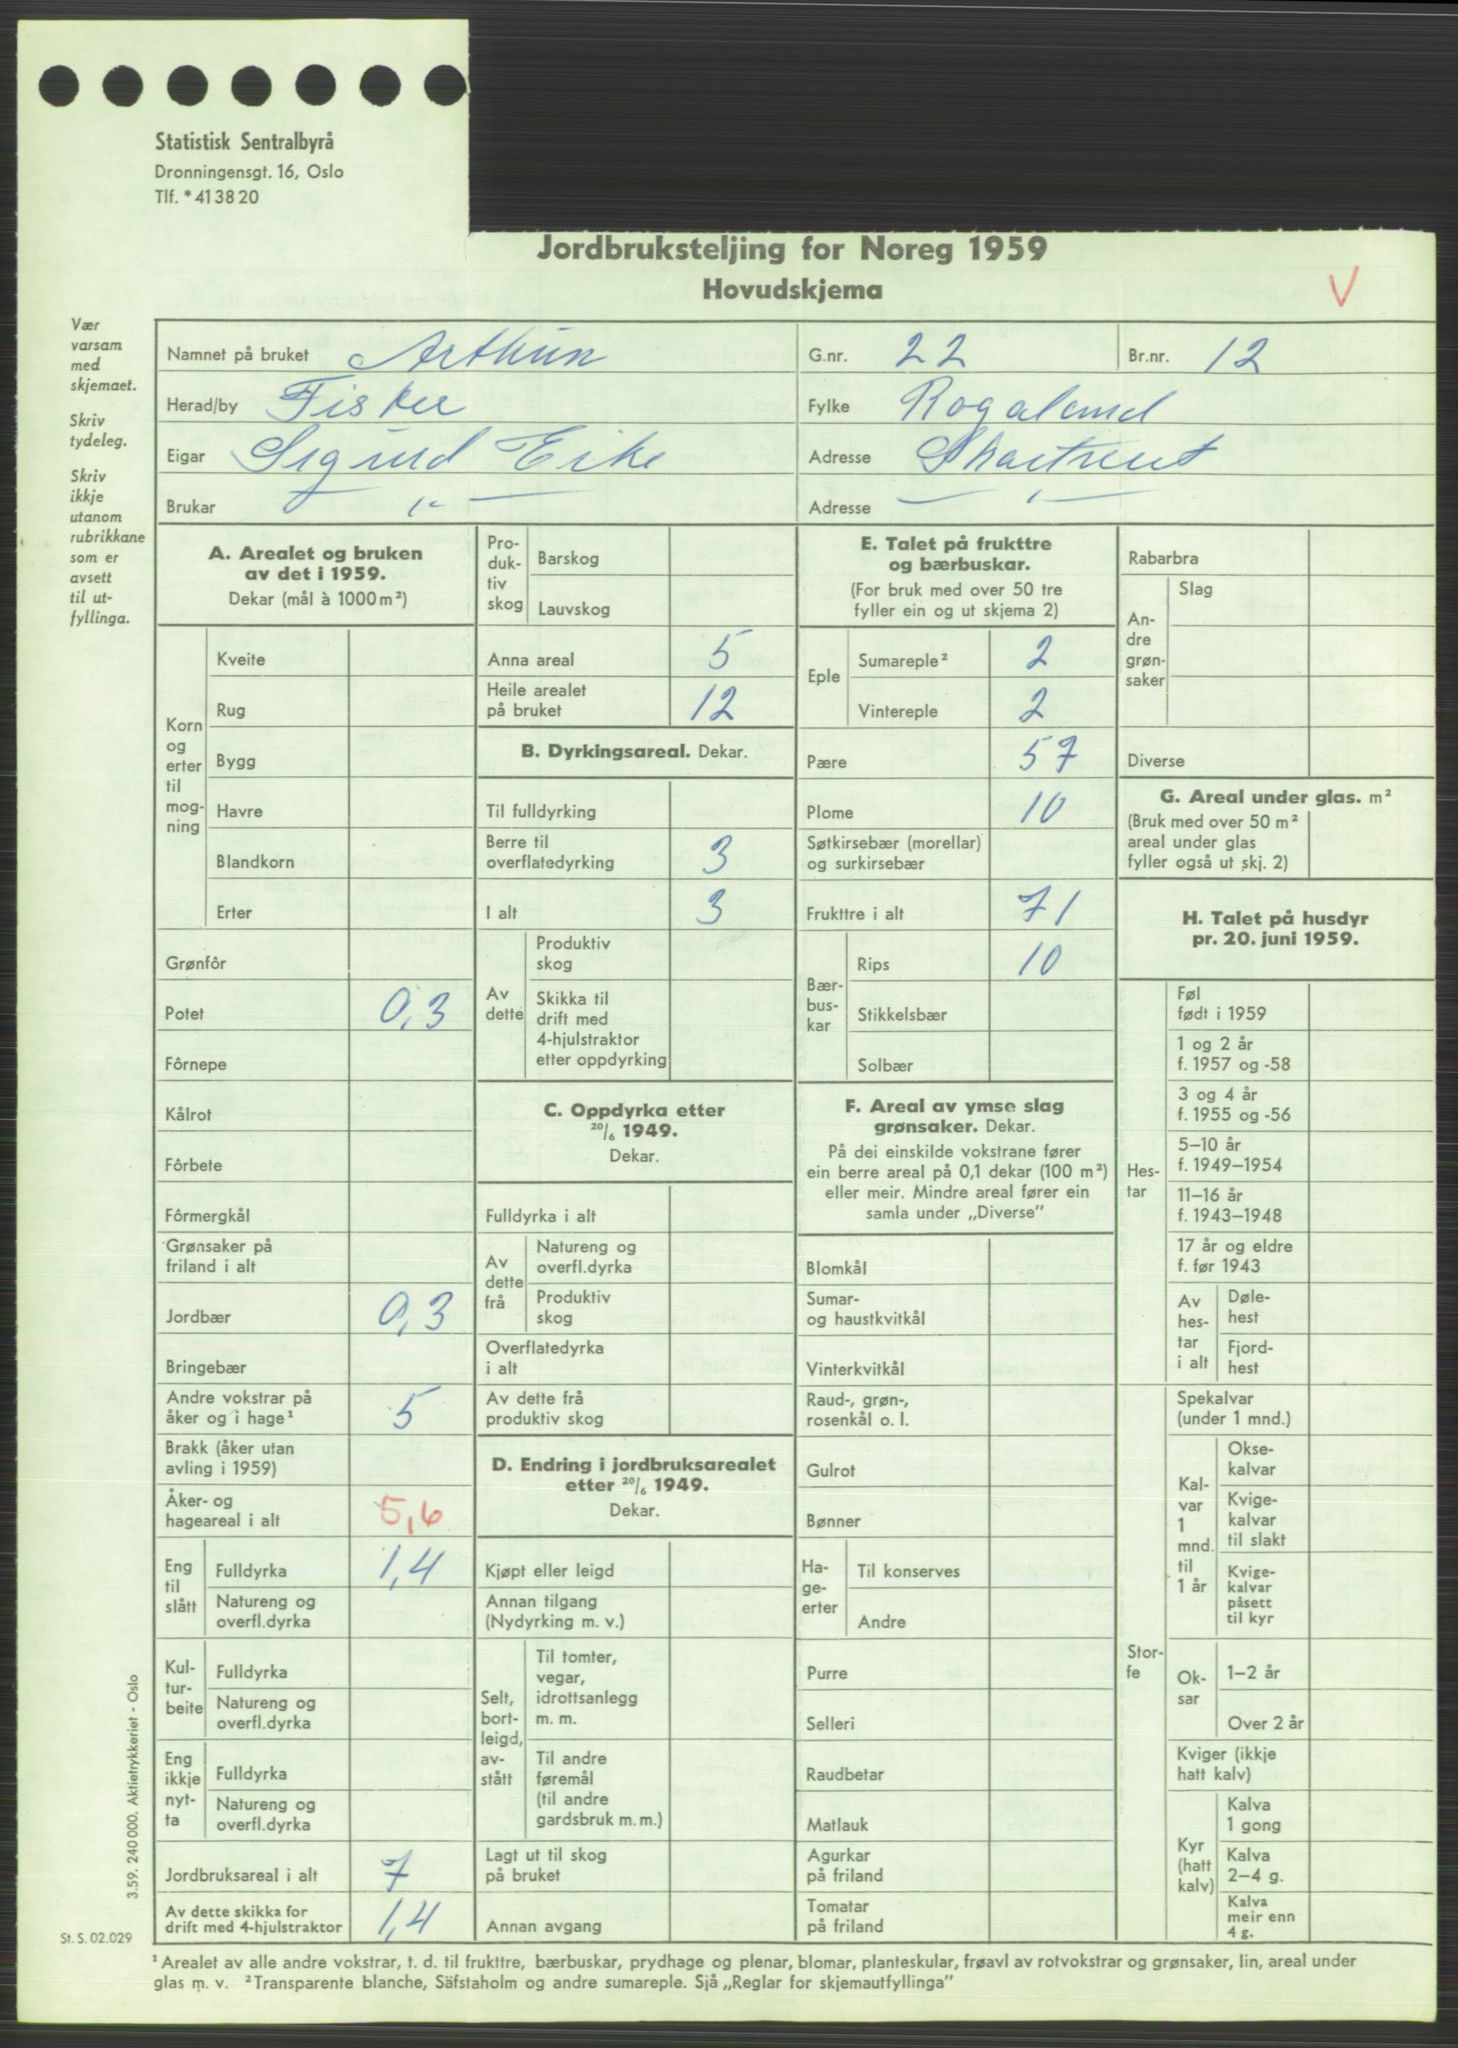 Statistisk Sentralbyrå
Dronningensgt. 16, Oslo
Tlf. * 41 38 20
Jordbruksteljing for Noreg 1959
Hovudskjema
V
Vær
varsam
med
skjemaet.
Skriv
tydeleg.
Skriv
ikkje
utanom
rubrikkane
som er
avsett
til ut-
fyllinga.
Namnet på bruket Arthun G.nr. 22 Br.nr. 12
Herad/by Fister Fylke Rogaland
Eigar Sigurd Eike Adresse
Brukar — " — Adresse — " —
A. Arealet og bruken
av det i 1959.
Dekar (mål à 1000 m²)
Korn
og
erter
til
mog-
ning
Kveite
Rug
Bygg
Havre
Blandkorn
Erter
Grønfôr
Potet 0,3
Fôrnepe
Kålrot
Fôrbete
Fôrmergkål
Grønsaker på
friland i alt
Jordbær 0,3
Bringebær
Andre vokstrar på
åker og i hage¹ 5
Brakk (åker utan
avling i 1959)
Åker- og
hageareal i alt 5,6
Eng
til
slått
Fulldyrka 1,4
Natureng og
overfl.dyrka
Kul-
tur-
beite
Fulldyrka
Natureng og
overfl.dyrka
Eng
ikkje
nyt-
ta
Fulldyrka
Natureng og
overfl.dyrka
Jordbruksareal i alt 7
Av dette skikka for
drift med 4-hjulstraktor 1,4
Pro-
duk-
tiv
skog
Barskog
Lauvskog
Anna areal 5
Heile arealet
på bruket 12
B. Dyrkingsareal. Dekar.
Til fulldyrking
Berre til
overflatedyrking 3
I alt 3
Av
dette
Produktiv
skog
Skikka til
drift med
4-hjulstraktor
etter oppdyrking
C. Oppdyrka etter
20/6 1949.
Dekar.
Fulldyrka i alt
Av
dette
frå
Natureng og
overfl.dyrka
Produktiv
skog
Overflatedyrka
i alt
Av dette frå
produktiv skog
D. Endring i jordbruksarealet
etter 20/6 1949.
Dekar.
Kjøpt eller leigd
Annan tilgang
(Nydyrking m. v.)
Selt,
bort-
leigd,
av-
stått
Til tomter,
vegar,
idrottsanlegg
m. m.
Til andre
føremål
(til andre
gardsbruk m. m.)
Lagt ut til skog
på bruket
Annan avgang
E. Talet på frukttre
og bærbuskar.
(For bruk med over 50 tre
fyller ein og ut skjema 2)
Eple
Sumareple² 2
Vintereple 2
Pære 57
Plome 10
Søtkirsebær (morellar)
og surkirsebær
Frukttre i alt 71
Bær-
bus-
kar
Rips 10
Stikkelsbær
Solbær
F. Areal av ymse slag
grønsaker. Dekar.
På dei einskilde vokstrane fører
ein berre areal på 0,1 dekar (100 m²)
eller meir. Mindre areal fører ein
samla under „Diverse”
Blomkål
Sumar-
og haustkvitkål
Vinterkvitkål
Raud-, grøn-,
rosenkål o. l.
Gulrot
Bønner
Ha-
ge-
erter
Til konserves
Andre
Purre
Selleri
Raudbetar
Matlauk
Agurkar
på friland
Tomatar
på friland
Rabarbra
An-
dre
grøn-
saker
Slag
Diverse
G. Areal under glas. m²
(Bruk med over 50 m²
areal under glas
fyller også ut skj. 2)
H. Talet på husdyr
pr. 20. juni 1959.
Hes-
tar
Føl
født i 1959
1 og 2 år
f. 1957 og -58
3 og 4 år
f. 1955 og -56
5–10 år
f. 1949–1954
11–16 år
f. 1943–1948
17 år og eldre
f. før 1943
Av
hes-
tar
i alt
Døle-
hest
Fjord-
hest
Stor-
fe
Spekalvar
(under 1 mnd.)
Kal-
var
1
mnd.
til
1 år
Okse-
kalvar
Kvige-
kalvar
til slakt
Kvige-
kalvar
påsett
til kyr
Ok-
sar
1–2 år
Over 2 år
Kviger (ikkje
hatt kalv)
Kyr
(hatt
kalv)
Kalva
1 gong
Kalva
2–4 g.
Kalva
meir enn
4 g.
3.59. 240 000. Aktietrykkeriet - Oslo
St. S. 02.029
¹ Arealet av alle andre vokstrar, t. d. til frukttre, bærbuskar, prydhage og plenar, blomar, planteskular, frøavl av rotvokstrar og grønsaker, lin, areal under
glas m. v. ² Transparente blanche, Säfstaholm og andre sumareple. Sjå „Reglar for skjemautfyllinga”